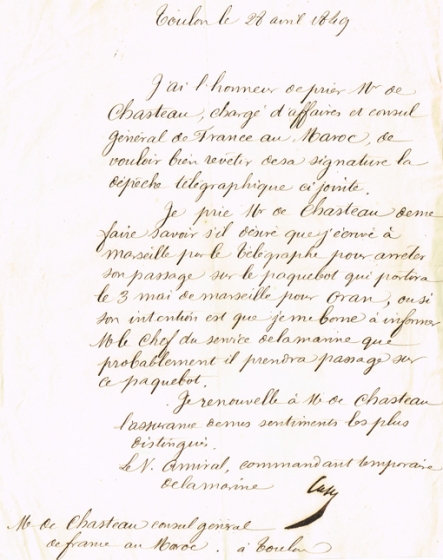 Toulon le 28 avril 1849
J'ai l'honneur de prier Mr de
Chasteau, chargé d'affaires et consul
général de France au Maroc, de
vouloir bien revêter desa signature la
dépêche télégraphique ci jointe.
Je prie Mr de Chasteau deme
faire savoir s'il désire que j'écrive à
marseille par le télégraphe pour arrêter
son passage sur le paquebot qui partira
le 3 mai de marseille pour Oran, ou si
son intention est que je me borne à informer
Mr le Chef du service delamarine que
probablement il prendra passage sur
ce paquebot.
Je renouvelle à Mr de Chasteau
l'assurance demes sentiments les plus
distingués.
Le V. Amiral, commandant temporaire
delamarine
Mr de Chasteau consul général
de france au Maroc. à Toulon